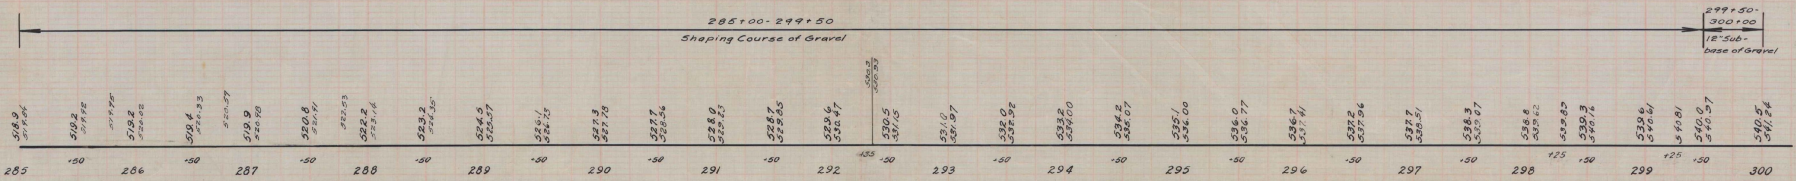 285+00-299+50
Shaping Course of Gravel
299+50-
300+00
12" Sub-
base of Gravel
530.3
530.93
518.9
519.2
519.98
519.95
519.2
520.02
519.4
520.33
520.57
519.9
520.98
520.8
521.91
522.53
522.2
523.14
523.2
524.35
524.5
525.57
526.1
526.73
527.3
527.78
527.7
528.56
528.0
529.23
528.7
529.85
529.6
530.47
530.5
531.15
531.0
531.97
532.0
532.92
533.2
534.00
534.2
535.07
535.1
536.00
536.0
536.77
536.7
537.41
537.2
537.96
537.7
538.51
538.3
539.07
538.8
539.62
539.89
539.3
540.16
539.6
540.61
540.81
540.0
540.97
540.5
541.24
+50 +50 +50 +50 +50 +50 +50 +35 +50 +50 +50 +50 +50 +50 +25 +50 +25 +50
285 286 287 288 289 290 291 292 293 294 295 296 297 298 299 300